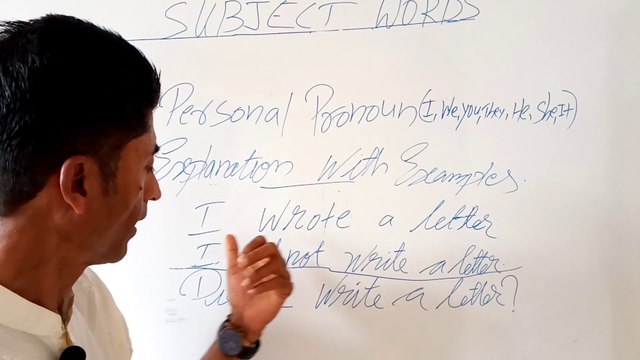 SUBJECT WORDS
Personal Pronoun (I, We, You, They, He, She, It)
Explanation With Examples.
I Wrote a letter
I not write a letter.
write a letter?